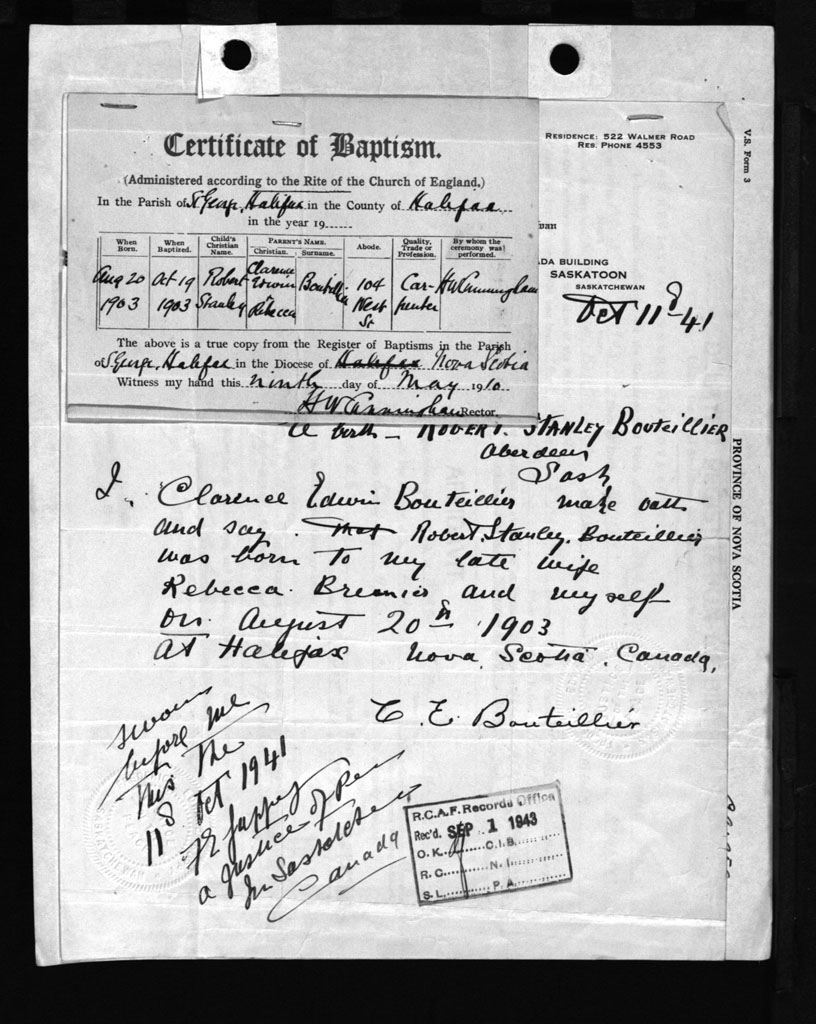 Certificate of Baptism.
(Administered according to the Rite of the Church of England.)
In the Parish of St George, Halifax in the County of Halifax
in the year 19......
When Born. When Baptized. Child's Christian Name. PARENT'S NAME. Christian. Surname. Abode. Quality, Trade or Profession. By whom the ceremony was performed.
Aug 20 1903 Oct 19 1903 Robert Stanley Clarence Edwin & Rebecca 104 West St Carpenter HWCunningham
The above is a true copy from the Register of Baptisms in the Parish
of St George, Halifax in the Diocese of Halifax Nova Scotia
Witness my hand this ninth day of May 1910
HWCunningham Rector.
RESIDENCE: 522 WALMER ROAD
RES. PHONE 4553
V.S. Form 3
wan
DA BUILDING
SASKATOON
SASKATCHEWAN
Oct 11th 41
birth - ROBERT. STANLEY BOUTEILLIER
Aberdeen
Sask
I, Clarence Edwin Bouteillier make oath
and say. That Robert, Stanley. Bouteillier
was born to my late wife
Rebecca and myself
on August 20th 1903
AT Halifax Nova, Scotia. Canada,
C. E. Bouteillier
PROVINCE OF NOVA SCOTIA
sworn
before me
this The
11th Oct 1941
a Justice of Peace
In Saskatchewan
Canada
R.C.A.F. Records Office
Rec'd. SEP 1 1943
O.K. C.I.B.
R.C. N.I.
S.L. P.A.